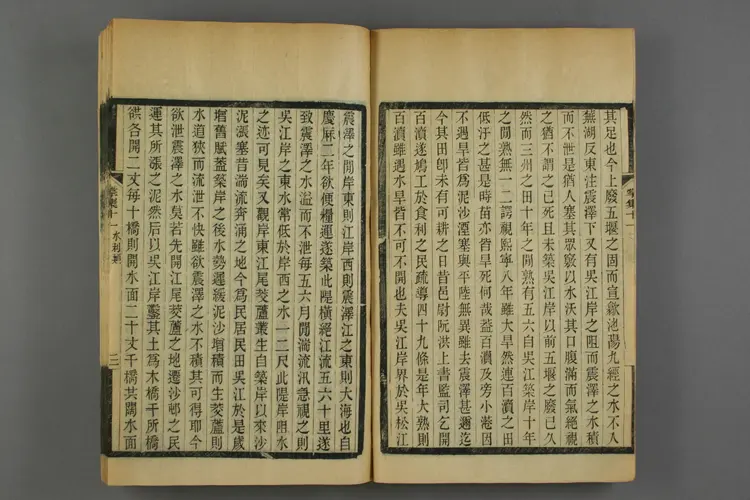 其足也今上廢五堰之固而宣歙池陽九經之水不入
蕪湖反東注震澤下又有吳江岸之阻而震澤之水積
而不泄是猶人塞其眾竅以水沃其口腹滿而氣絕視
之猶不謂之已死且未築吳江岸以前五堰之廢已久
然而三州之田十年之閒熟有五六自吳江築岸十年
之閒熟無一二謬視熙寧八年雖大旱然連百瀆之田
低汙之甚是時苗亦皆旱死何哉葢百瀆及旁小港因
不遇旱皆爲泥沙湮塞與平陸無異雖去震澤甚邇迄
今其田卽未有可耕之日昔邑尉阮洪上書監司乞開
百瀆遂鳩工於食利之民疏導四十九條是年大熟則
百瀆雖遇水旱皆不可不開也夫吳江岸界於吳松江
震澤之閒岸東則江岸西則震澤江之東則大海也自
慶麻二年欲便糧運遂築此隄橫絕江流五六十里遂
致震澤之水溢而不泄每五六月閒湍流汛急視之則
吳江岸之東水常低於岸西之水一二尺此隄岸阻水
之迹可見矣又觀岸東江尾茭蘆叢生自築岸以來沙
泥漲塞昔湍流奔涌之地今爲民居民田吳江於是歲
增舊賦葢築岸之後水勢遲緩泥沙堆積而生茭蘆則
水道狹而流泄不快雖欲震澤之水不積其可得耶今
欲泄震澤之水莫若先開江尾茭蘆之地遷沙邨之民
運其所漲之泥然后以吳江岸鑿其土爲木橋千所橋
谼各開二丈每十橋則開水面二十丈千橋共闊水面